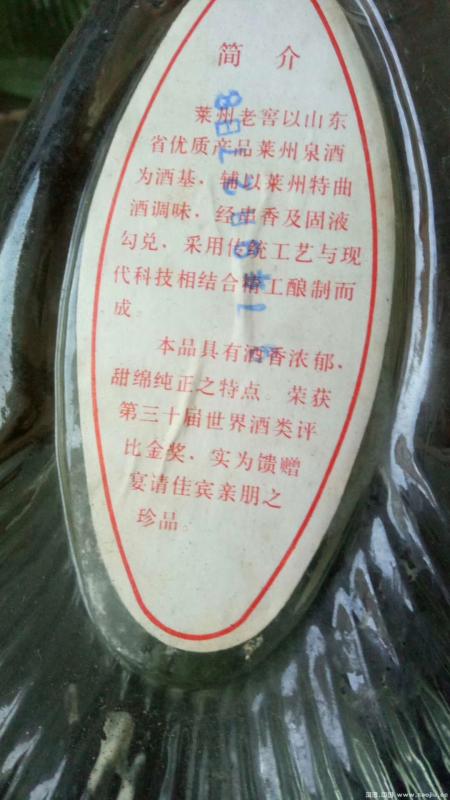 简 介
莱州老窖以山东
省优质产品莱州泉酒
为酒基，辅以莱州特曲
酒调味，经串香及固液
勾兑，采用传统工艺与现
代科技相结合精工酿制而
成。
本品具有酒香浓郁、
甜绵纯正之特点。荣获
第三十届世界酒类评
比金奖，实为馈赠
宴请佳宾亲朋之
珍品。
www.caojiu.cn